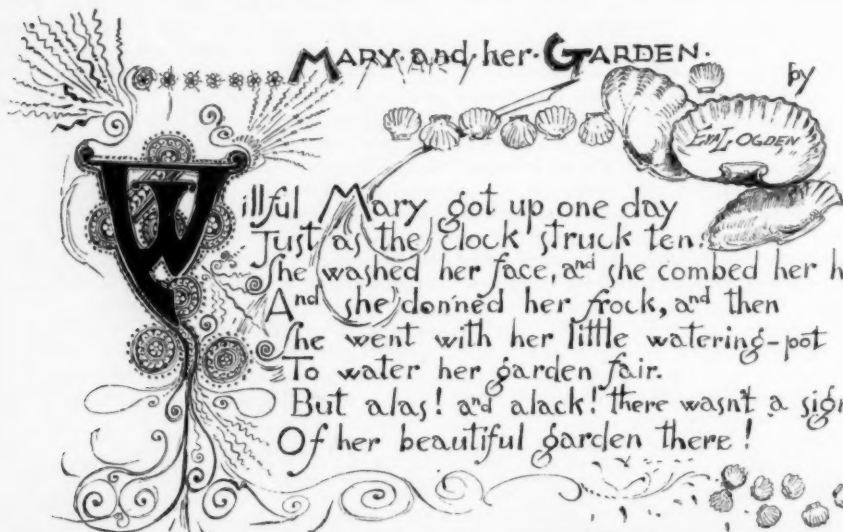 MARY·and·her·GARDEN·
by
EVA L. OGDEN
Willful Mary got up one day
Just as the clock struck ten:
She washed her face, and she combed her h
And she donned her frock, and then
She went with her little watering-pot
To water her garden fair.
But alas! and alack! there wasn't a sign
Of her beautiful garden there!